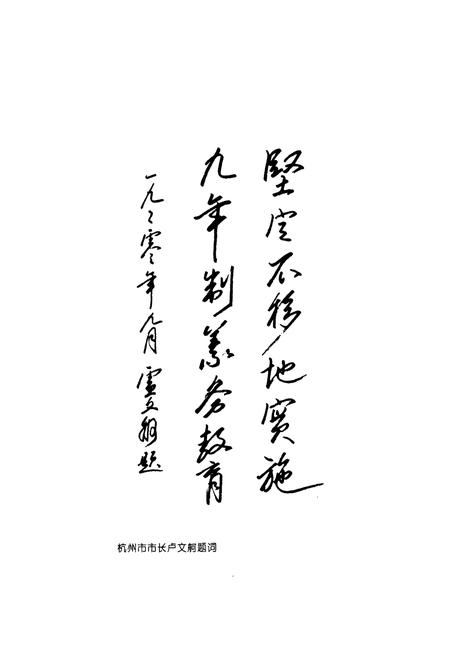 堅定不移地實施
九年制義务教育
一九九零年九月 盧文舸题
杭州市市长卢文舸题词